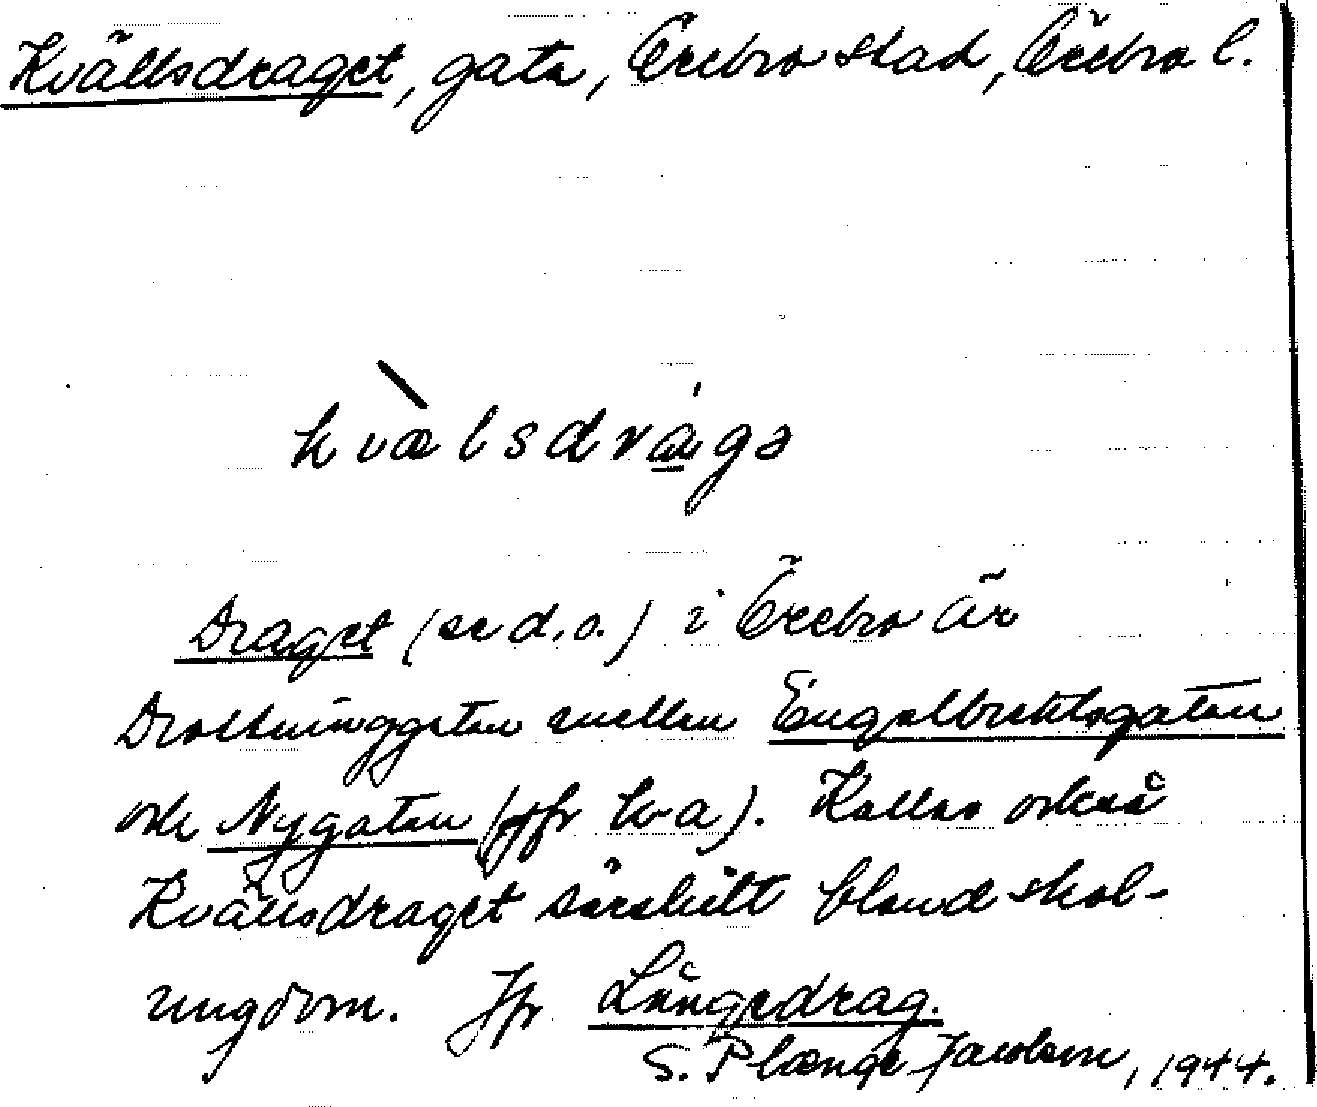 Kvällsdraget, gata, Örebro stad, Örebro l.
kvælsdrágə
Draget (se d.o.) i Örebro är
Drottninggatan mellan Engelbrektsgatan
och Nygatan (jfr kva). Kallas också
Kvällsdraget särskilt bland skol-
ungdom. Jfr Långedrag.
S. Plænge Jacobson, 1944.